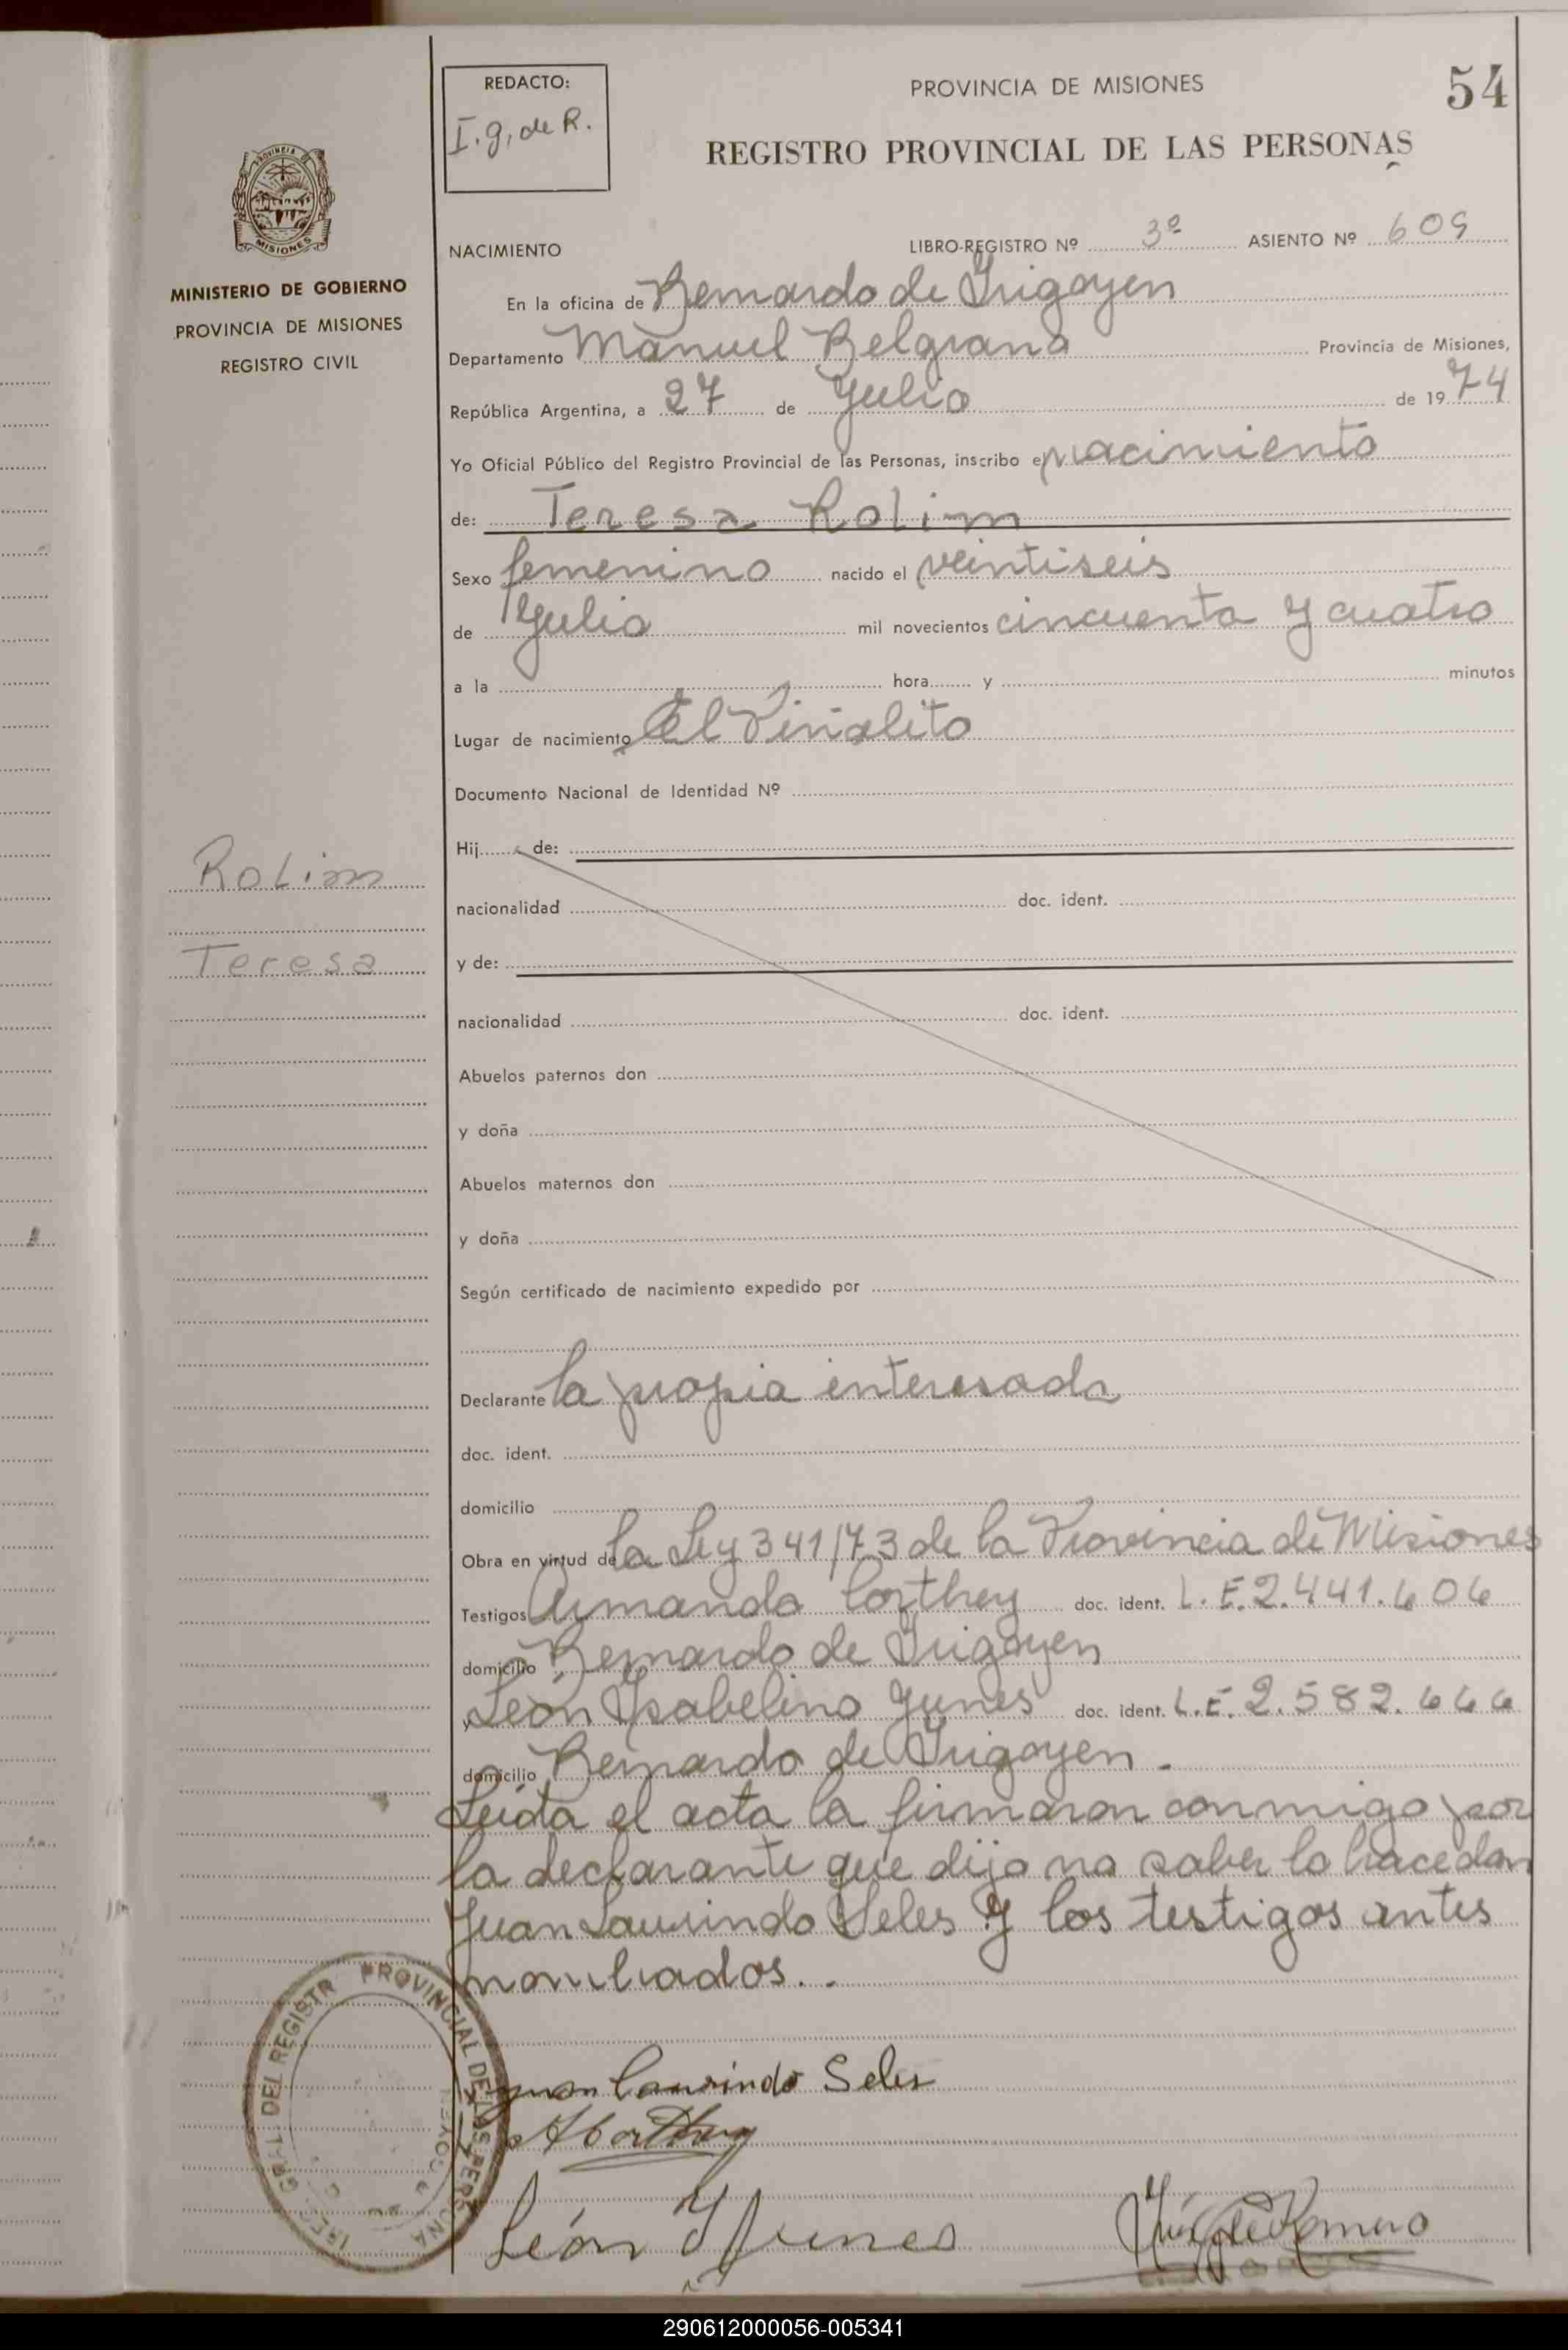 REDACTO:
I. g. de R.
PROVINCIA DE MISIONES
54
REGISTRO PROVINCIAL DE LAS PERSONAS
MISIONES
MINISTERIO DE GOBIERNO
PROVINCIA DE MISIONES
REGISTRO CIVIL
NACIMIENTO LIBRO-REGISTRO Nº 3º ASIENTO Nº 609
En la oficina de Bernardo de Irigoyen
Departamento Manuel Belgrano Provincia de Misiones,
República Argentina, a 27 de Julio de 1974
Yo Oficial Público del Registro Provincial de las Personas, inscribo el nacimiento
de: Teresa Rolim
Sexo femenino nacido el veintiseis
de Julio mil novecientos cincuenta y cuatro
a la hora y minutos
Lugar de nacimiento El Piñalito
Documento Nacional de Identidad Nº
Rolim
Teresa
Hij de:
nacionalidad doc. ident.
y de:
nacionalidad doc. ident.
Abuelos paternos don
y doña
Abuelos maternos don
y doña
Según certificado de nacimiento expedido por
Declarante la propia interesada
doc. ident.
domicilio
Obra en virtud de la Ley 341/73 de la Provincia de Misiones
Testigos Armando Corthey doc. ident. L.E. 2.441.606
domicilio Bernardo de Irigoyen
y León Ysabelino Yunes doc. ident. L.E. 2.582.666
domicilio Bernardo de Irigoyen.
Leida el acta la firmaron conmigo por
la declarante que dijo no saber lo hace don
Juan Laurindo Seles y los testigos antes
nombrados..
Juan Laurindo Seles
León Y Yunes
PROVINCIAL DE LAS PERSONA
GRAL. DEL REGISTR
290612000056-005341